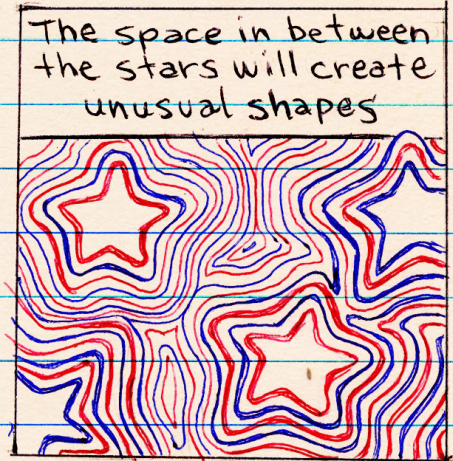 The space in between
the stars will create
unusual shapes